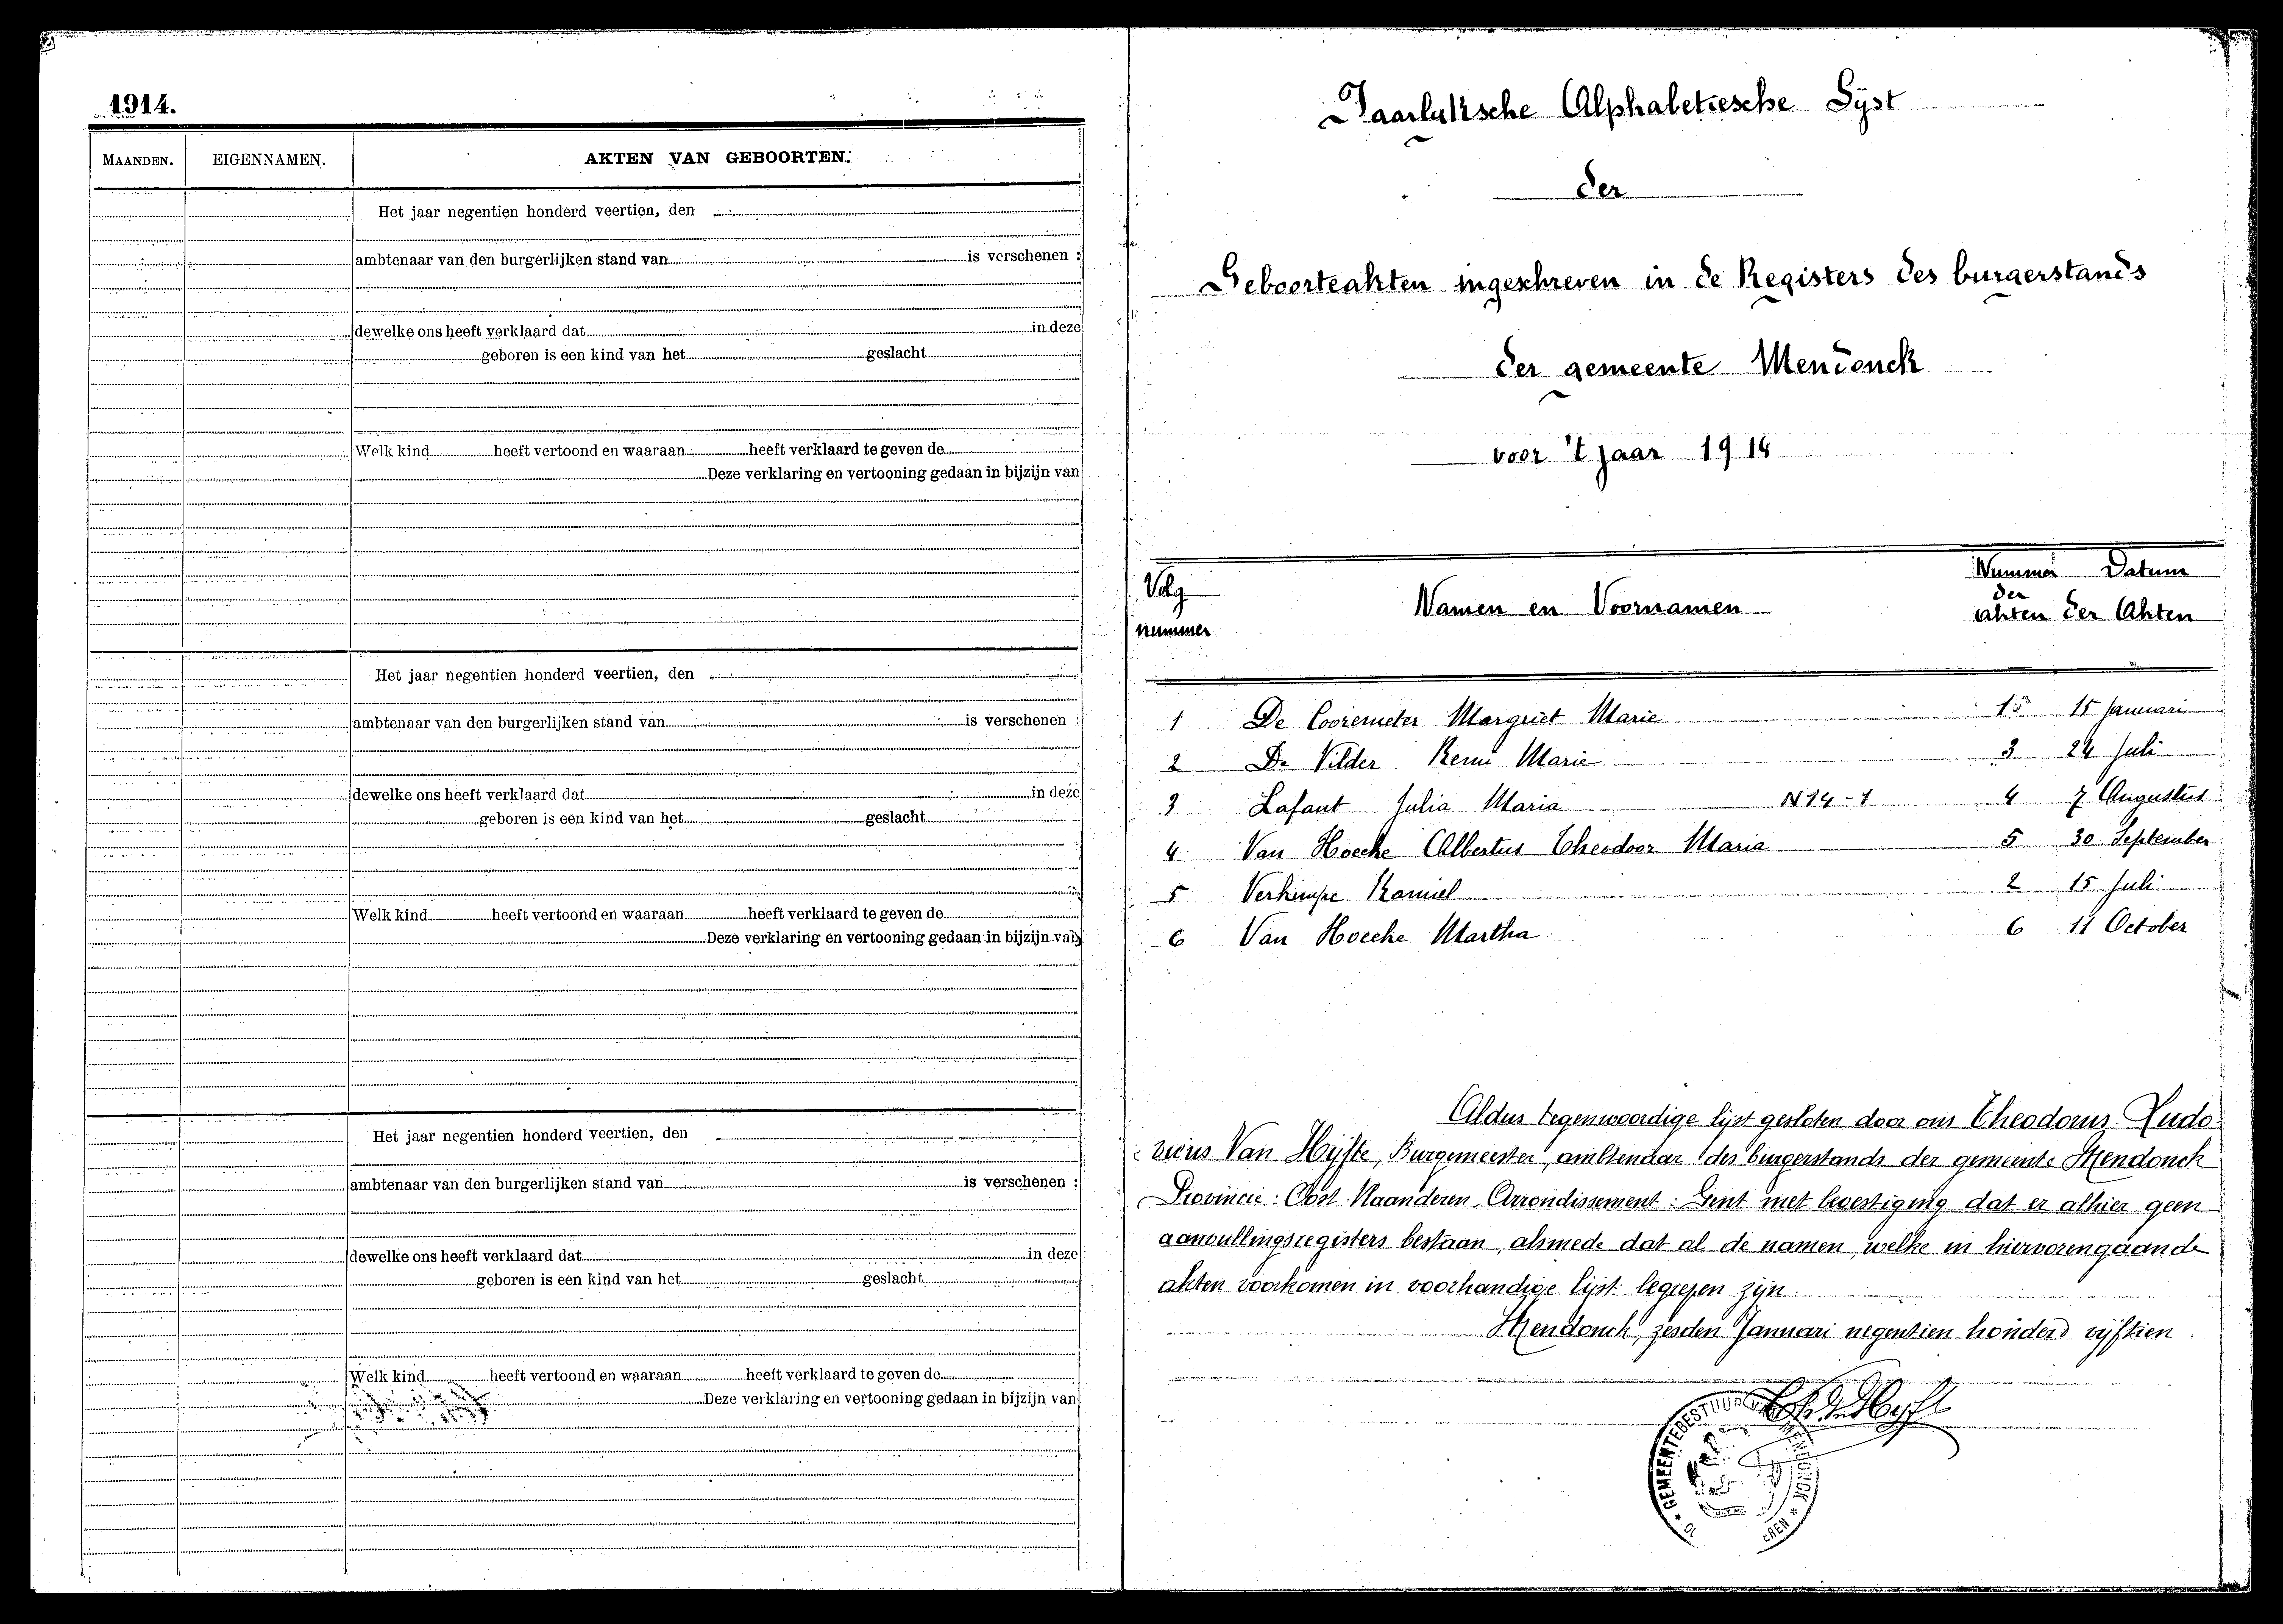 1914.
MAANDEN. EIGENNAMEN. AKTEN VAN GEBOORTEN.
Het jaar negentien honderd veertien, den
ambtenaar van den burgerlijken stand van is verschenen :
dewelke ons heeft verklaard dat in deze
geboren is een kind van het geslacht
Welk kind heeft vertoond en waaraan heeft verklaard te geven de
Deze verklaring en vertooning gedaan in bijzijn van
Het jaar negentien honderd veertien, den
ambtenaar van den burgerlijken stand van is verschenen :
dewelke ons heeft verklaard dat in deze
geboren is een kind van het geslacht
Welk kind heeft vertoond en waaraan heeft verklaard te geven de
Deze verklaring en vertooning gedaan in bijzijn van
Het jaar negentien honderd veertien, den
ambtenaar van den burgerlijken stand van is verschenen :
dewelke ons heeft verklaard dat in deze
geboren is een kind van het geslacht
Welk kind heeft vertoond en waaraan heeft verklaard te geven de
Deze verklaring en vertooning gedaan in bijzijn van
Jaarlyksche Alphabetiesche Lyst
der
Geboorteakten ingeschreven in de Registers des burgerstands
der gemeente Mendonck
voor 't jaar 1914
Volg nummer Namen en Voornamen Nummer der akten Datum der Akten
1 De Cooremeter Margriet Marie 1 15 Januari
2 De Vilder Remi Marie 3 24 Juli
3 Lafaut Julia Maria N 14-1 4 7 Augustus
4 Van Hoecke Albertus Theodoor Maria 5 30 September
5 Verkimpe Kamiel 2 15 Juli
6 Van Hoecke Martha 6 11 October
Aldus tegenwoordige lijst gesloten door ons Theodorus Ludo-
vicus Van Hijfte, Burgemeester, ambtenaar des burgerstands der gemeente Mendonck
Provincie: Oost-Vlaanderen, Arrondissement: Gent met bevestiging dat er alhier geen
aanvullingsregisters bestaan, alsmede dat al de namen, welke in hiervorengaande
akten voorkomen in voorhandige lijst begrepen zijn.
Mendonck, zesden Januari negentien honderd vijftien
GEMEENTEBESTUUR